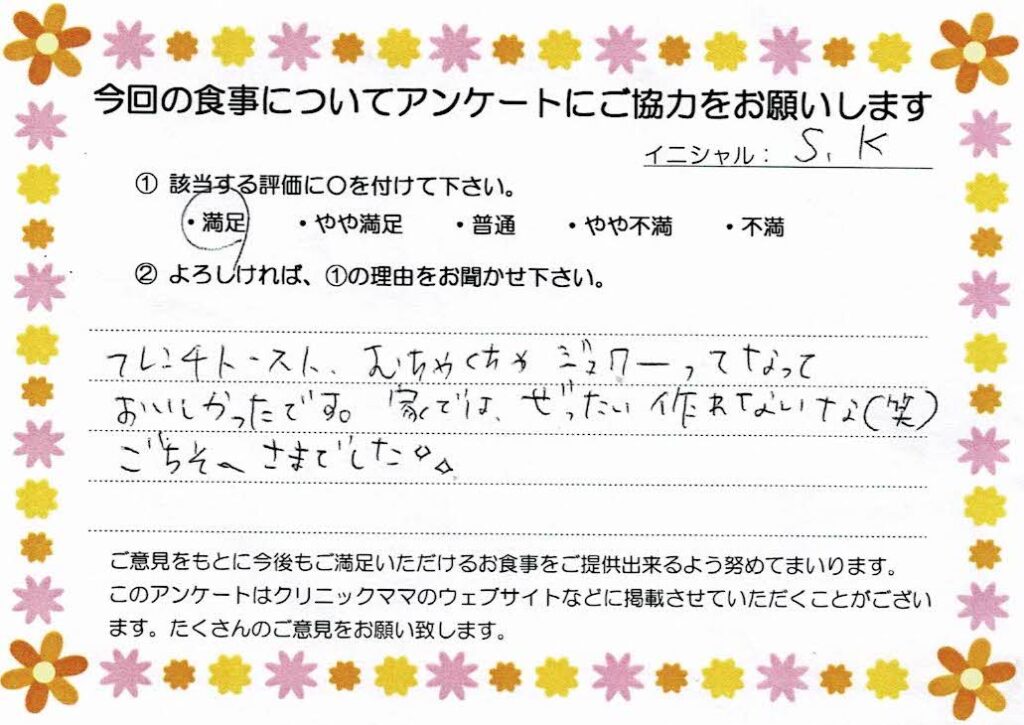 今回の食事についてアンケートにご協力をお願いします
イニシャル： S. K
① 該当する評価に〇を付けて下さい。
・満足 ・やや満足 ・普通 ・やや不満 ・不満
② よろしければ、①の理由をお聞かせ下さい。
フレンチトースト、むちゃくちゃ ジュワーってなって
おいしかったです。 家では、ぜったい 作れないな(笑)
ごちそーさまでした
ご意見をもとに今後もご満足いただけるお食事をご提供出来るよう努めてまいります。
このアンケートはクリニックママのウェブサイトなどに掲載させていただくことがござい
ます。たくさんのご意見をお願い致します。